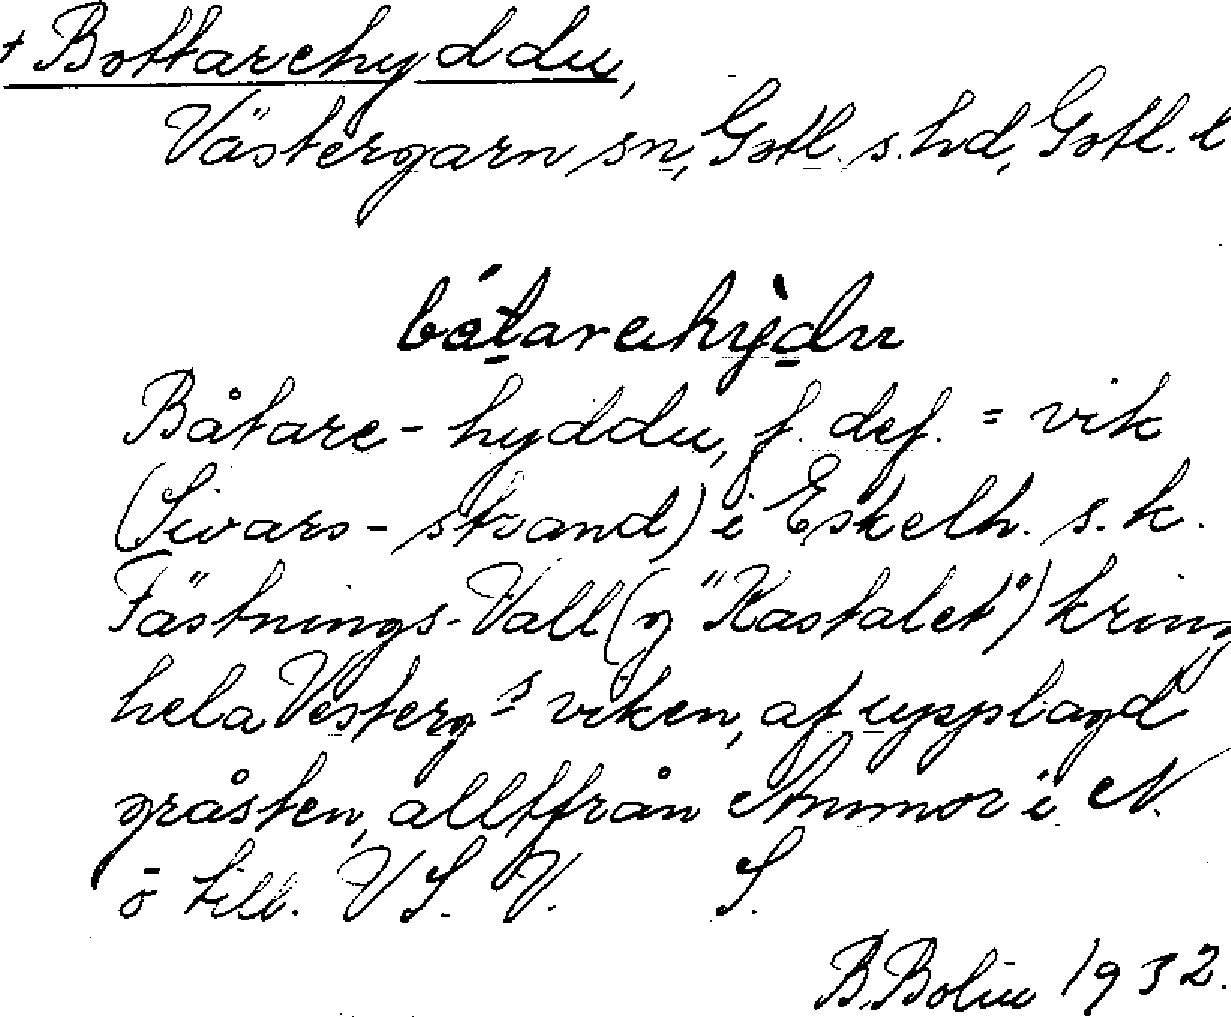 + Bottarehyddu,
Västergarn sn, Gotl. s. hd, Gotl. l
bátarehỳdu
Båtare-hyddu, f. def. = vik
(Sivars-strand) i Eskelh. s. k.
Fästnings-Vall (y "Kastalet") kring
hela Vesterg s viken, af upplagd
gråsten, alltfrån Ammor i N.
ō till. V S. V. S.
B. Bolin 1932.